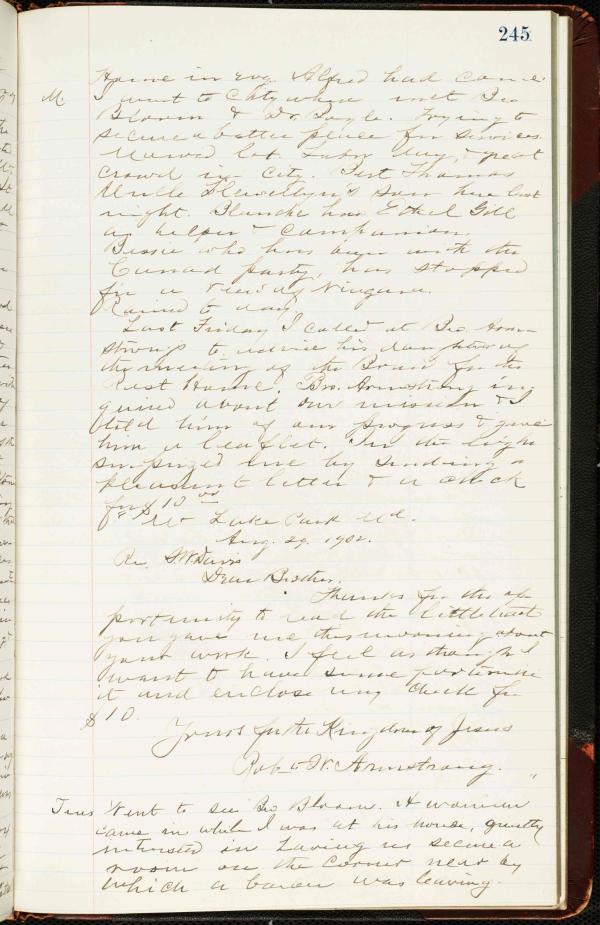 245
Home in Evg. Alfred had come
M. I went to City where met Bro
Bloom & Dr. Boyle. Trying to
secure a better place for services.
Labor day, & great
crowd in City. Thomas
Uncle Llewellyn's son here last
night. Blanche has Ethel Gill
as helper & Companion.
Bessie who has been with the
Conrad party, has stopped
for a view of Niagara.
Rained to day.
Last Friday I called at Bro. Arm-
strong to advise his daughter of
the meeting of the Board for the
Rest Home. Bro. Armstrong in-
quired about our mission & I
told him of our progress & gave
him a leaflet. In the
surprized me by sending a
pleasant letter & a check
for $10 00
Mt Lake Park Md.
Aug. 29. 1902.
Rev. SW Davis
Dear Brother.
Thanks for the op-
portunity to read the little
you gave me this morning about
your work. I feel as though I
want to have some part in
it and enclose my check for
$10.
Yours for the Kingdom of Jesus
Robt W. Armstrong. "
Tues Went to see Bro Bloom. A woman
came in while I was at his house, greatly
interested in having us secure a
room on the corner near by
which a was leaving.